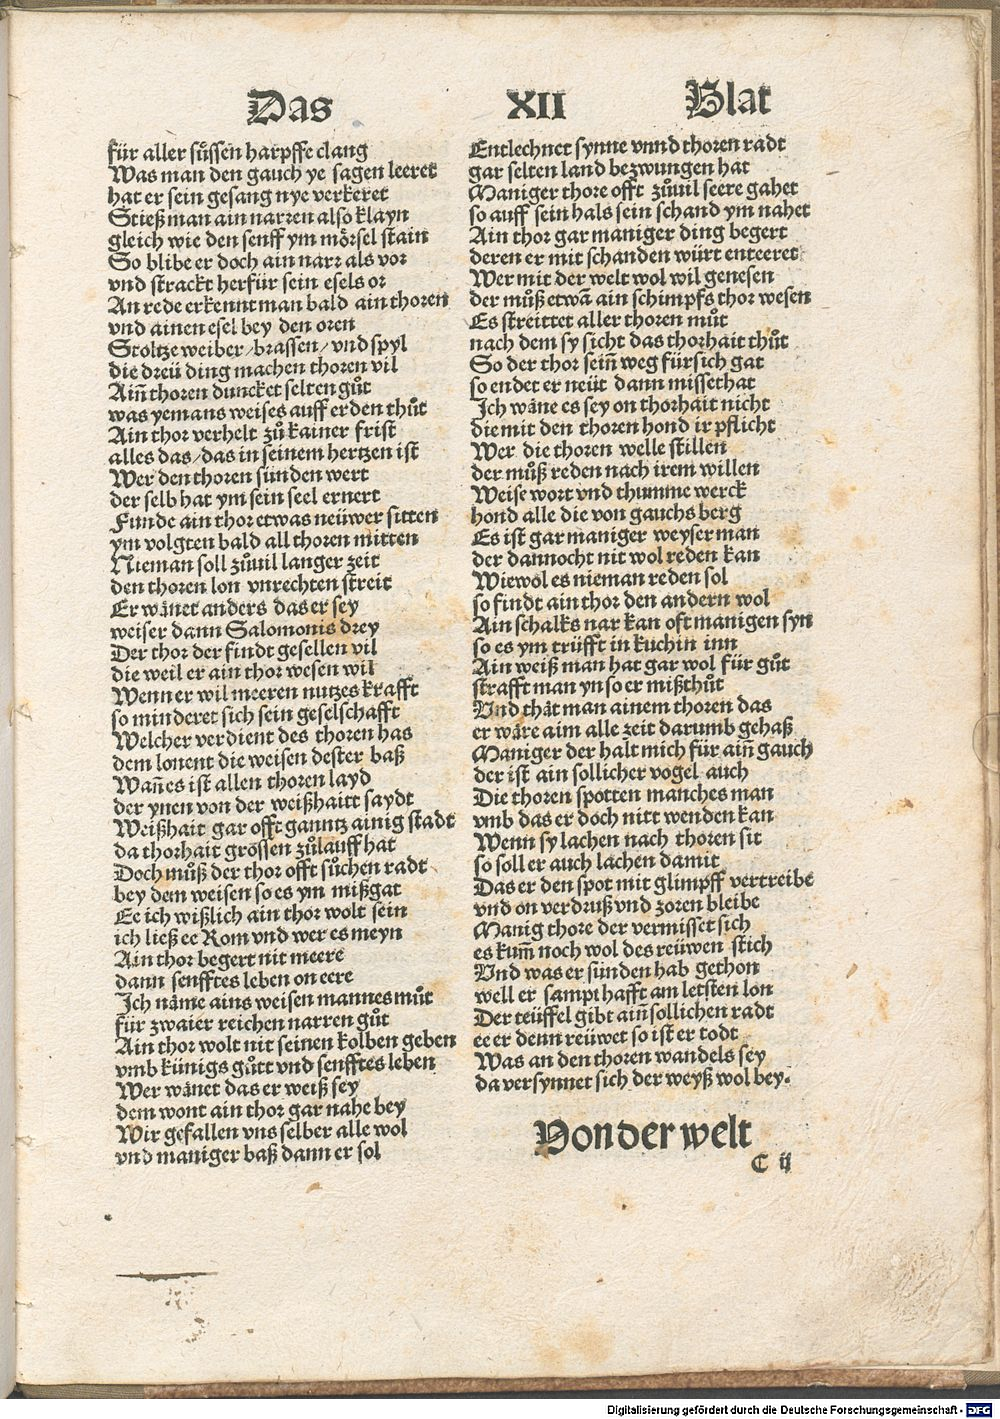 Das XII Blat
für aller sůssen harpffe clang
Was man den gauch ye sagen leeret
hat er sein gesang nye verkeret
Stieß man ain narren also klayn
gleich wie den senff ym mörsel stain
So blibe er doch ain narr als vor
vnd strackt herfür sein esels or
An rede erkennt man bald ain thoren
vnd ainen esel bey den oren
Stoltze weiber / brassen / vnd spyl
die dreü ding machen thoren vil
Aiñ thoren duncket selten gůt
was yemans weises auff erden thůt
Ain thor verhelt zů kainer frist
alles das / das in seinem hertzen ist
Wer den thoren sünden wert
der selb hat ym sein seel ernert
Funde ain thor etwas neüwer sitten
ym volgten bald all thoren mitten
Nieman soll zůuil langer zeit
den thoren lon vnrechten streit
Er wänet anders das er sey
weiser dann Salomonis drey
Der thor der findt gesellen vil
die weil er ain thor wesen wil
Wenn er wil meeren nutzes krafft
so minderet sich sein geselschafft
Welcher verdient des thoren has
dem lonent die weisen dester baß
Wañ es ist allen thoren layd
der ynen von der weißhaitt saydt
Weißhait gar offt ganntz ainig stadt
da thorhait grössen zůlauff hat
Doch můß der thor offt sůchen radt
bey dem weisen so es ym mißgat
Ee ich wißlich ain thor wolt sein
ich ließ ee Rom vnd wer es meyn
Ain thor begert nit meere
dann senfftes leben on eere
Ich näme ains weisen mannes můt
für zwaier reichen narren gůt
Ain thor wolt nit seinen kolben geben
vmb künigs gůtt vnd senfftes leben
Wer wänet das er weiß sey
dem wont ain thor gar nahe bey
Wir gefallen vns selber alle wol
vnd maniger baß dann er sol
Entlechnet synne vnnd thoren radt
gar selten land bezwungen hat
Maniger thore offt zůuil seere gahet
so auff sein hals sein schand ym nahet
Ain thor gar maniger ding begert
deren er mit schanden würt enteeret
Wer mit der welt wol wil genesen
der můß etwã ain schimpfs thor wesen
Es streittet aller thoren můt
nach dem sy sicht das thorhait thůt
So der thor seiñ weg fürsich gat
so endet er neüt dann missethat
Ich wäne es sey on thorhait nicht
die mit den thoren hond ir pflicht
Wer die thoren welle stillen
der můß reden nach irem willen
Weise wort vnd thumme werck
hond alle die von gauchs berg
Es ist gar maniger weyser man
der dannocht nit wol reden kan
Wiewol es nieman reden sol
so findt ain thor den andern wol
Ain schalks nar kan oft manigen syn
so es ym trüfft in kuchin inn
Ain weiß man hat gar wol für gůt
strafft man yn so er mißthůt
Vnd thät man ainem thoren das
er wäre aim alle zeit darumb gehaß
Maniger der halt mich für aiñ gauch
der ist ain sollicher vogel auch
Die thoren spotten manches man
vmb das er doch nitt wenden kan
Wenn sy lachen nach thoren sit
so soll er auch lachen damit
Das er den spot mit glimpff vertreibe
vnd on verdruß vnd zoren bleibe
Manig thore der vermisset sich
es kum̃ noch wol des reüwen stich
Vnd was er sünden hab gethon
well er sampthafft am letsten lon
Der teüffel gibt aiñ sollichen radt
ee er denn reüwet so ist er todt
Was an den thoren wandels sey
da versynnet sich der weyß wol bey.
Von der welt
C ij
Digitalisierung gefördert durch die Deutsche Forschungsgemeinschaft - DFG